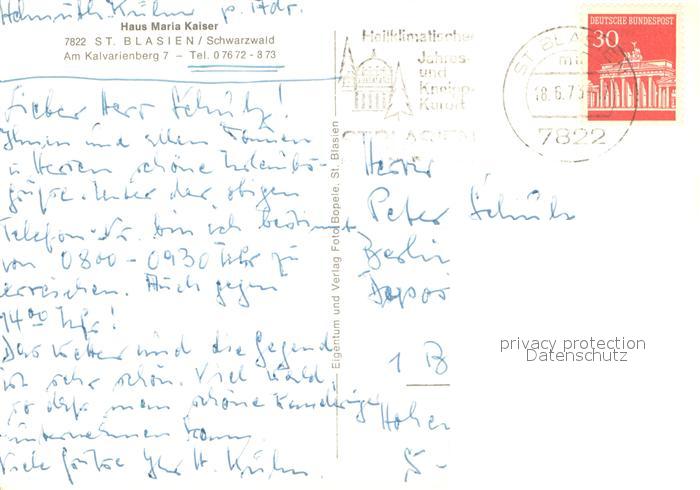 Helmuth Kühn p. Adr.
Haus Maria Kaiser
7822 ST. BLASIEN / Schwarzwald
Am Kalvarienberg 7 – Tel. 0 76 72 - 8 73
Lieber Herr Schulz!
Ihnen und allen Damen
u Herren schöne Urlaubs-
grüße. Unter der obigen
Telefon-Nr. bin ich bestimmt
von 0800 - 0930 Uhr zu
erreichen. Auch gegen
1400 Uhr!
Das Wetter und die Gegend
ist sehr schön. Viel Wald,
so daß man schöne Wanderungen
unternehmen kann.
Viele Grüße Ihr H. Kühn.
Eigentum und Verlag Foto Bopele, St. Blasien
Heilklimatischer
Jahres-
und
Kneipp-
Kurort
ST. BLASIEN
ST. BLASIEN
18.6.73
7822
DEUTSCHE BUNDESPOST
30
Herrn
Peter Schulz
Berlin
1 B
5-
privacy protection
Datenschutz